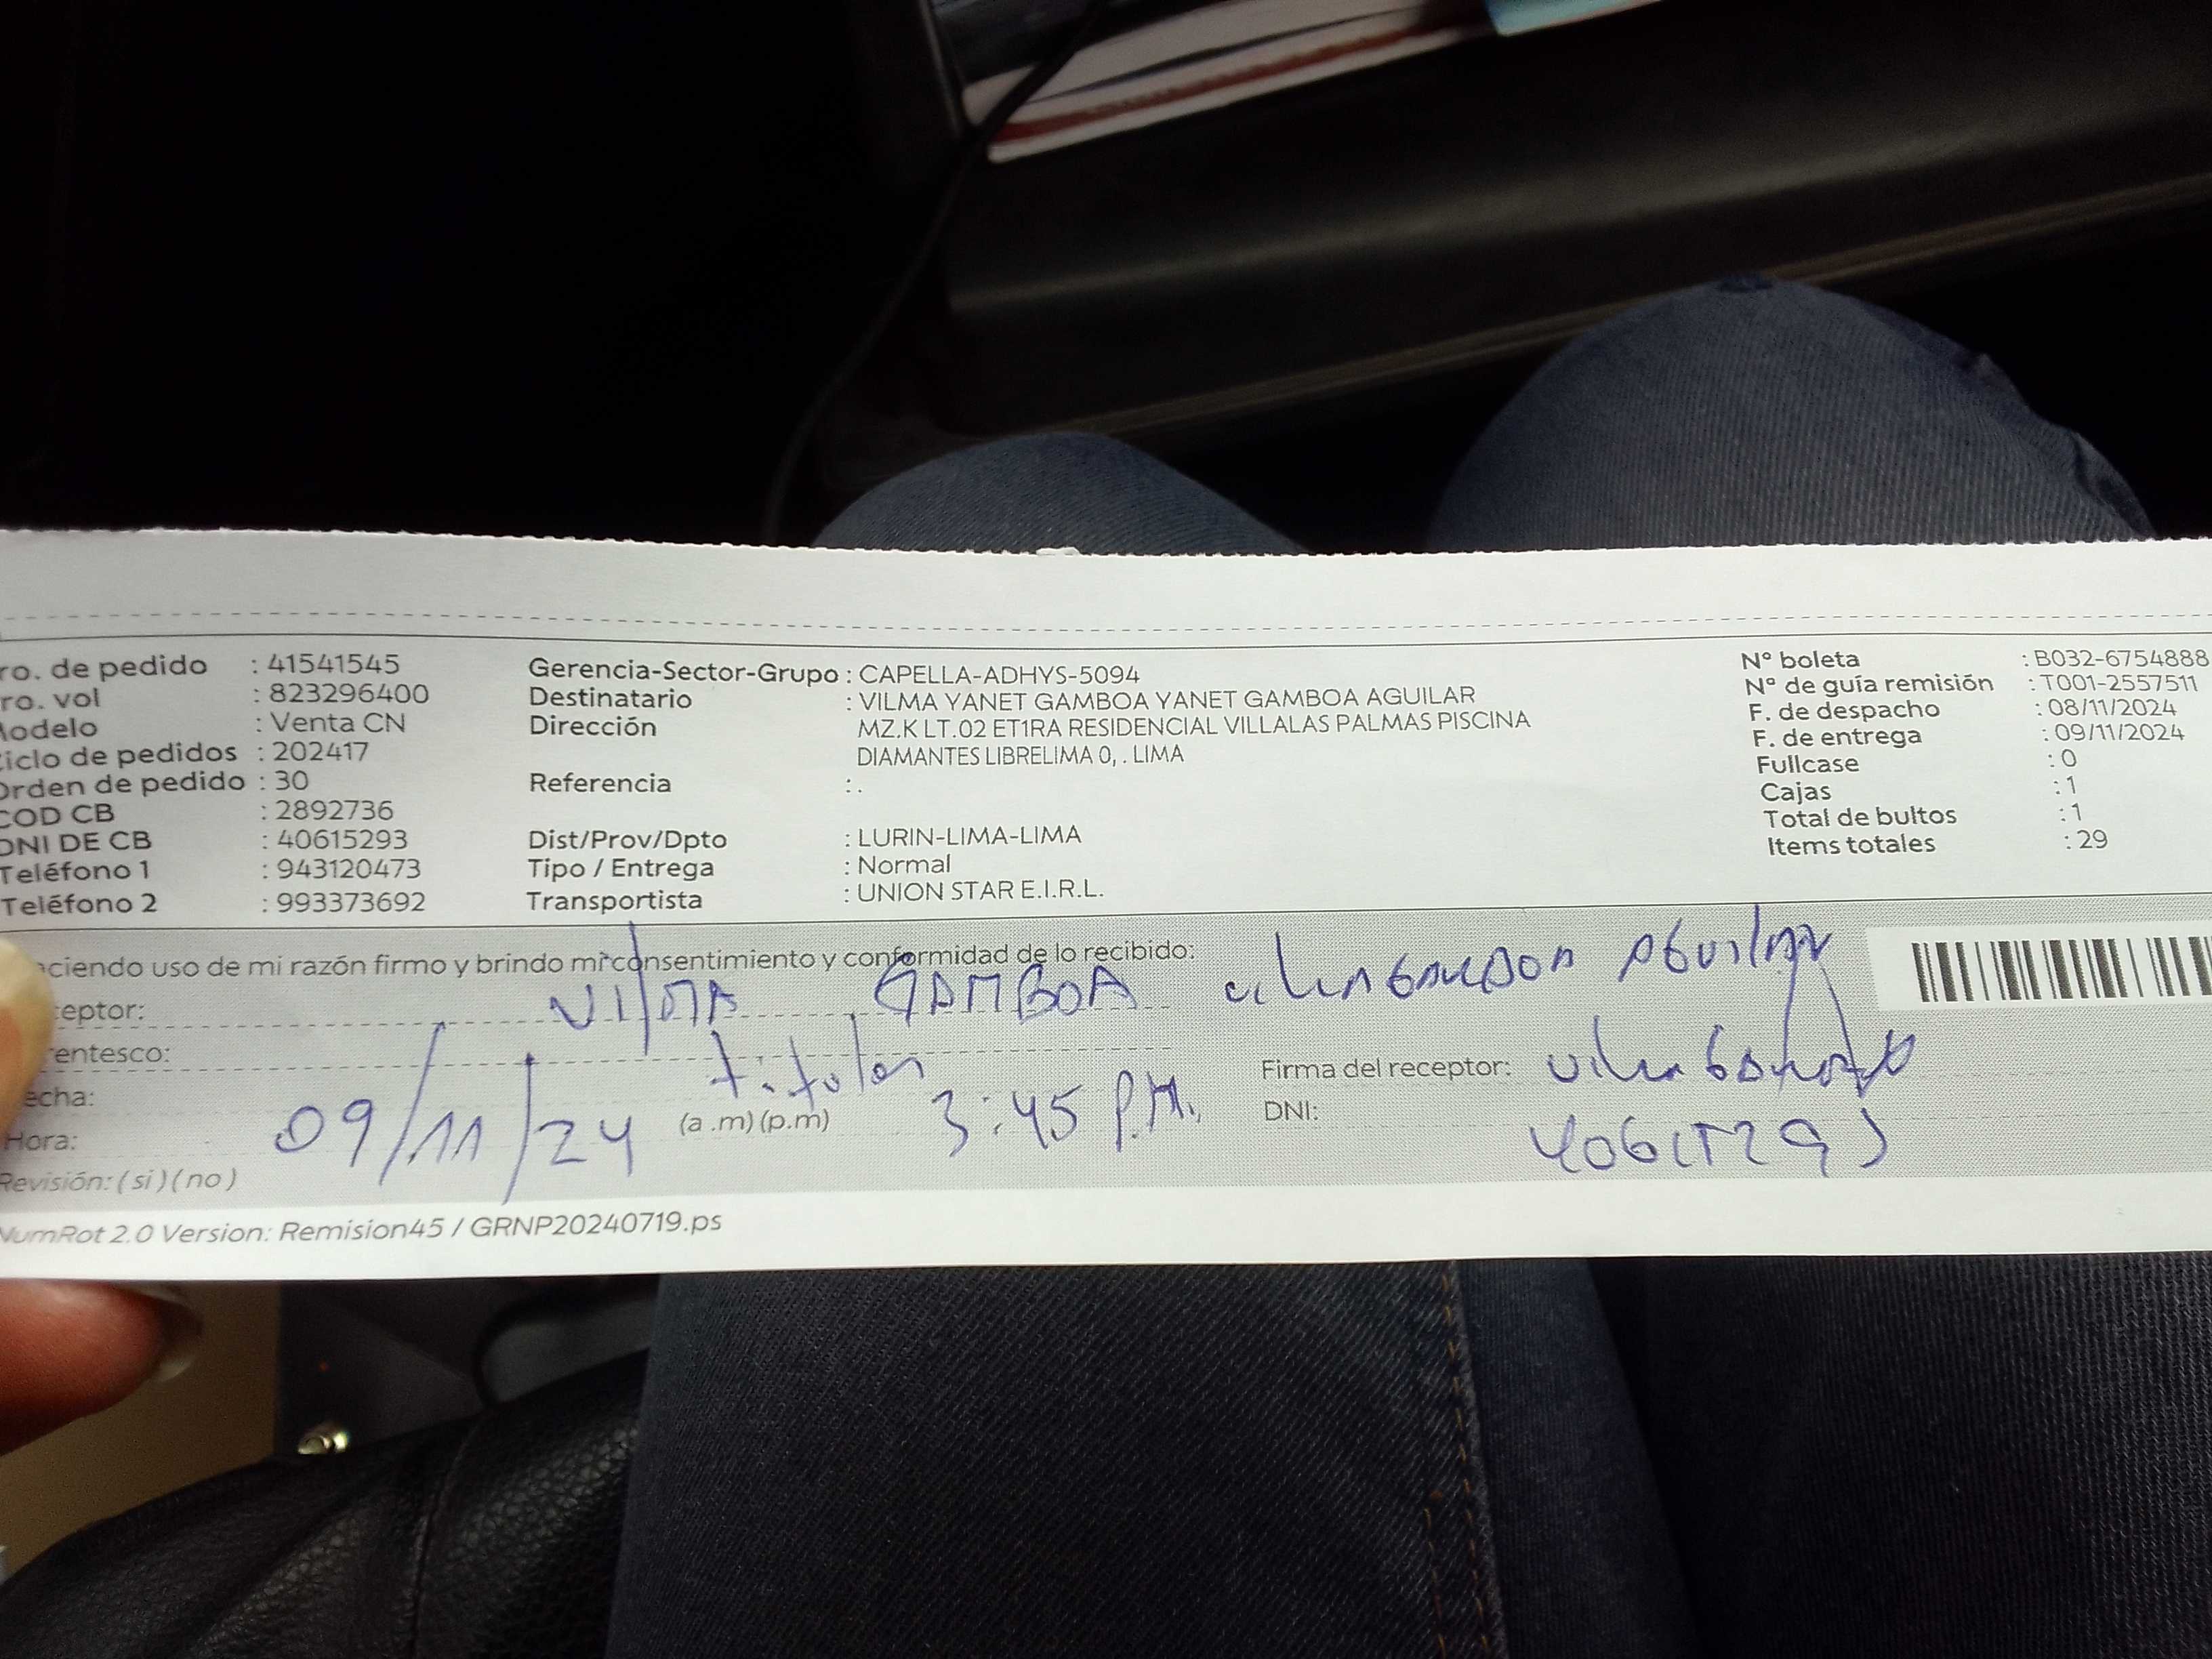 ro. de pedido : 41541545
ro. vol : 823296400
Modelo : Venta CN
iclo de pedidos : 202417
Orden de pedido : 30
COD CB : 2892736
DNI DE CB : 40615293
Teléfono 1 : 943120473
Teléfono 2 : 993373692
Gerencia-Sector-Grupo : CAPELLA-ADHYS-5094
Destinatario : VILMA YANET GAMBOA YANET GAMBOA AGUILAR
Dirección MZ.K LT.02 ET1RA RESIDENCIAL VILLALAS PALMAS PISCINA
DIAMANTES LIBRELIMA 0, . LIMA
Referencia : .
Dist/Prov/Dpto : LURIN-LIMA-LIMA
Tipo / Entrega : Normal
Transportista : UNION STAR E.I.R.L.
N° boleta : B032-6754888
N° de guía remisión : T001-2557511
F. de despacho : 08/11/2024
F. de entrega : 09/11/2024
Fullcase : 0
Cajas : 1
Total de bultos : 1
Items totales : 29
aciendo uso de mi razón firmo y brindo mi consentimiento y conformidad de lo recibido:
ceptor: VILMA GAMBOA Vilma Gamboa Aguilar
rentesco: titular
echa: 09/11/24
Hora: (a .m) (p.m) 3:45 P.M.
Revisión: ( si ) ( no )
Firma del receptor: Vilma Gamboa
DNI: 40615293
NumRot 2.0 Version: Remision45 / GRNP20240719.ps